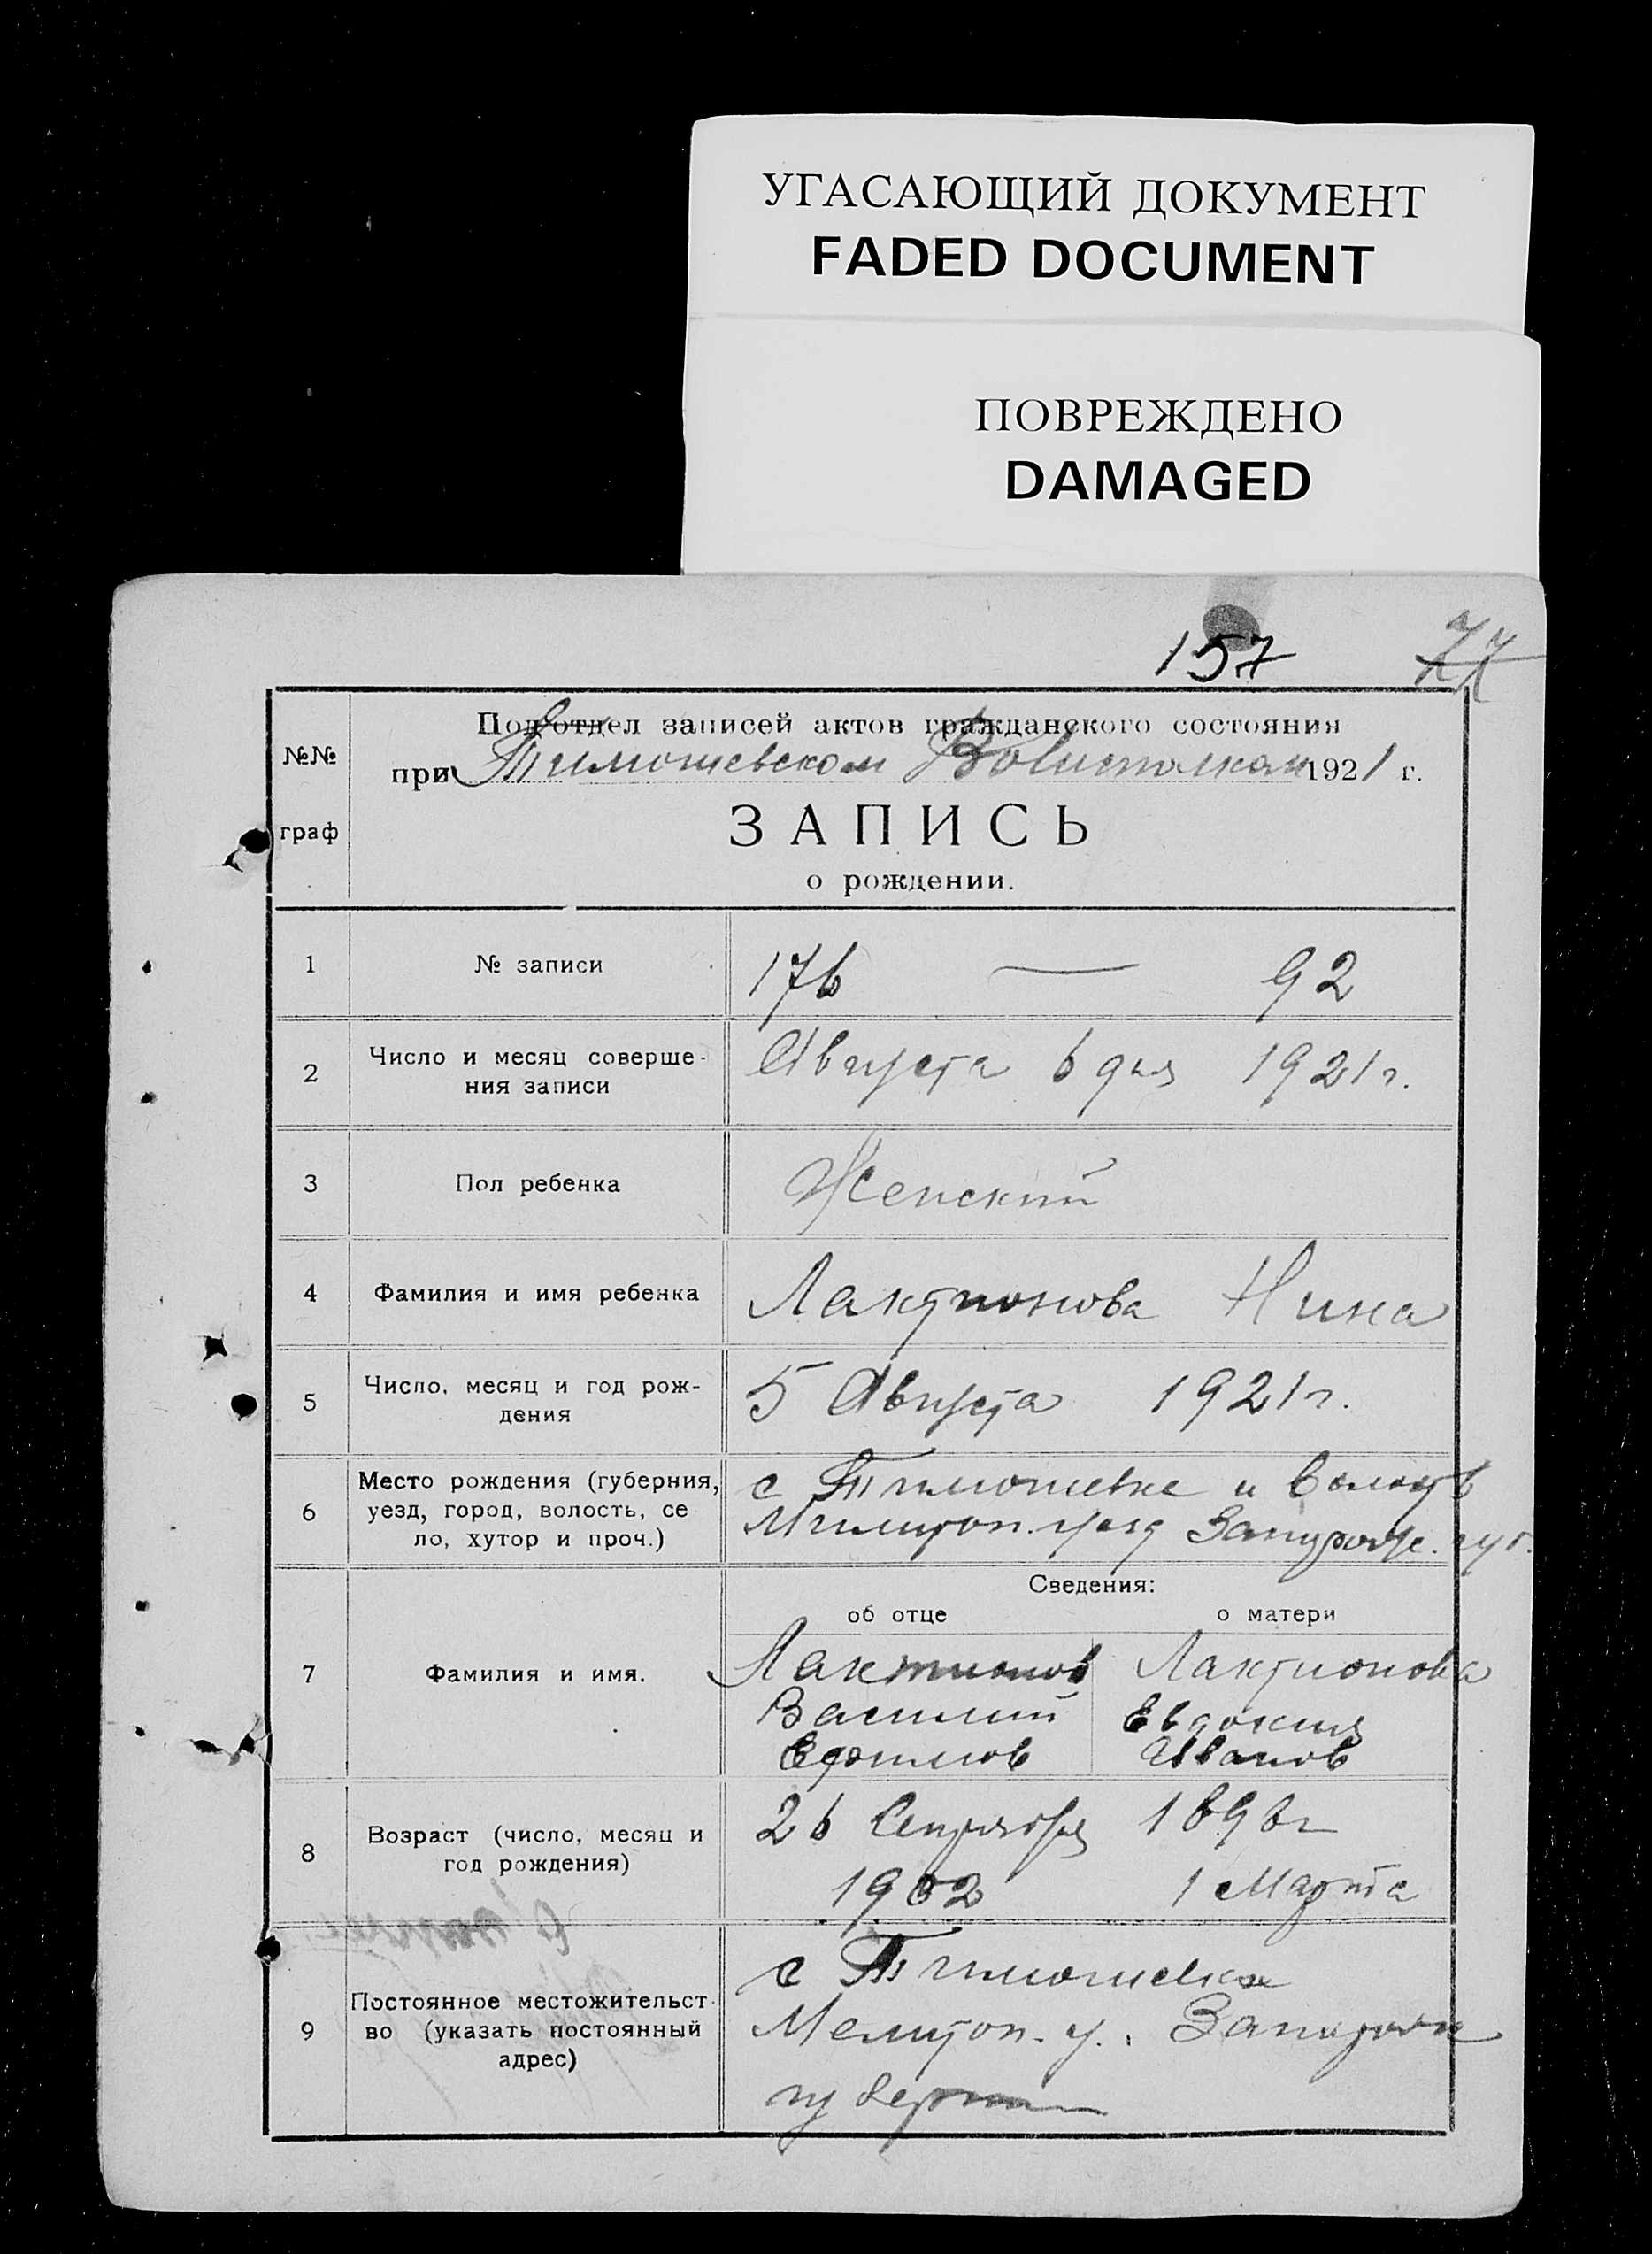 УГАСАЮЩИЙ ДОКУМЕНТ
FADED DOCUMENT
ПОВРЕЖДЕНО
DAMAGED
157 77
№№ граф
Подотдел записей актов гражданского состояния
при Тимошевском 1921 г.
ЗАПИСЬ
о рождении.
1 № записи 176 — 92
2 Число и месяц соверше-
ния записи Августа 6 дня 1921 г.
3 Пол ребенка Женский
4 Фамилия и имя ребенка Лактионова Нина
5 Число, месяц и год рож-
дения 5 Августа 1921 г.
6 Место рождения (губерния,
уезд, город, волость, се
ло, хутор и проч.)
с Тимошевке и волость
уезд Запорож. губ.
Сведения:
об отце о матери
7 Фамилия и имя.
Лактионов Лактионова
Василий Евдокия
Ефимов Иванов
8 Возраст (число, месяц и
год рождения)
26 Сентября 1898 г
1902 1 Марта
9 Постоянное местожительст
во (указать постоянный
адрес)
с Тимошевка
Мелитоп. у. Запорож
губерн